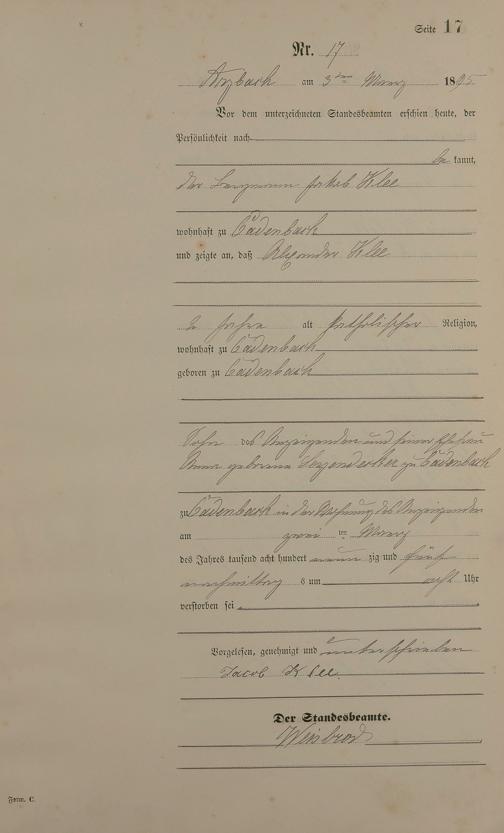 Seite 17
Nr. 17
Arzbach am 3ten Maerz 1895
Vor dem unterzeichneten Standesbeamten erschien heute, der
Persönlichkeit nach
be kannt,
der Bergmann Jakob Klee
wohnhaft zu Cadenbach
und zeigte an, daß Alexander Klee
2 Jahre alt katholischer Religion,
wohnhaft zu Cadenbach
geboren zu Cadenbach
Sohn des Anzeigenden und seiner Ehefrau
Anna geborene zu Cadenbach
zu Cadenbach in der Wohnung des Anzeigenden
am zwei ten Maerz
des Jahres tausend acht hundert neun zig und fünf
nachmittag s um acht Uhr
verstorben sei.
Vorgelesen, genehmigt und unterschrieben
Jacob Klee.
Der Standesbeamte.
Form. C.